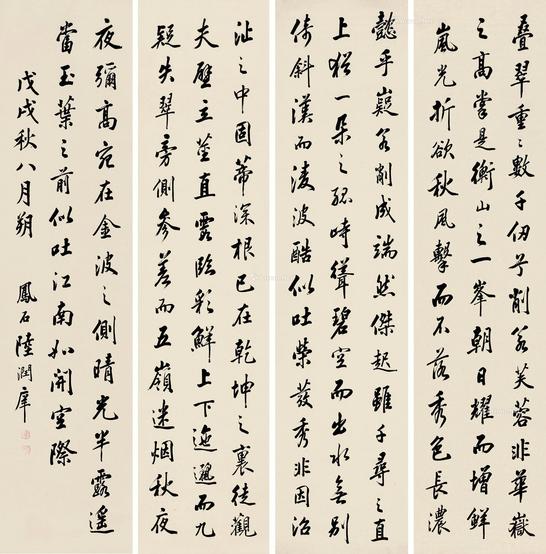 叠翠重重數千仞兮削若芙蓉非華嶽
之高掌是衡山之一峯朝日耀而增鮮
嵐光折欲秋風擊而不落秀色長濃
懿乎嶷若削成端然傑起雖千尋之直
上猶一朵之孤時聳碧空而出水無別
倚斜漢而淩波酷似吐榮發秀非因沼
沚之中固蒂深根已在乾坤之裏徒觀
夫壁立莖直露臨彩鮮上下迤邐而九
疑失翠旁側參差而五嶺迷烟秋夜
夜彌高宛在金波之側晴光半露遥
當玉葉之前似吐江南如開空際
戊戌秋八月朔 鳳石陸潤庠